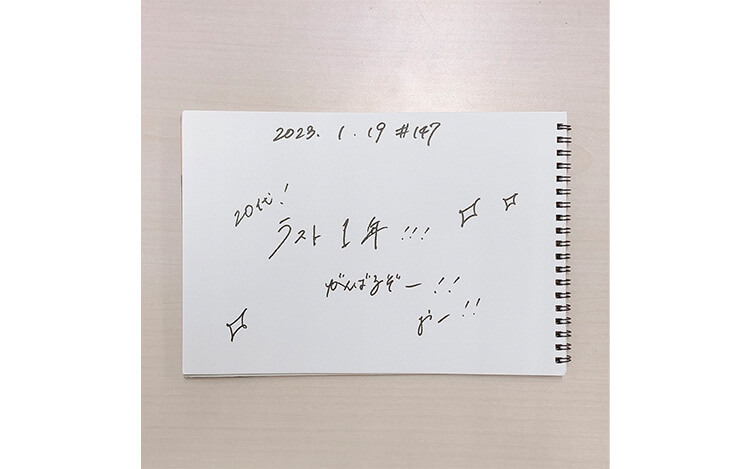 2023. 1. 19 #147
20代!
ラスト1年!!!
がんばるぞー!!
おー!!